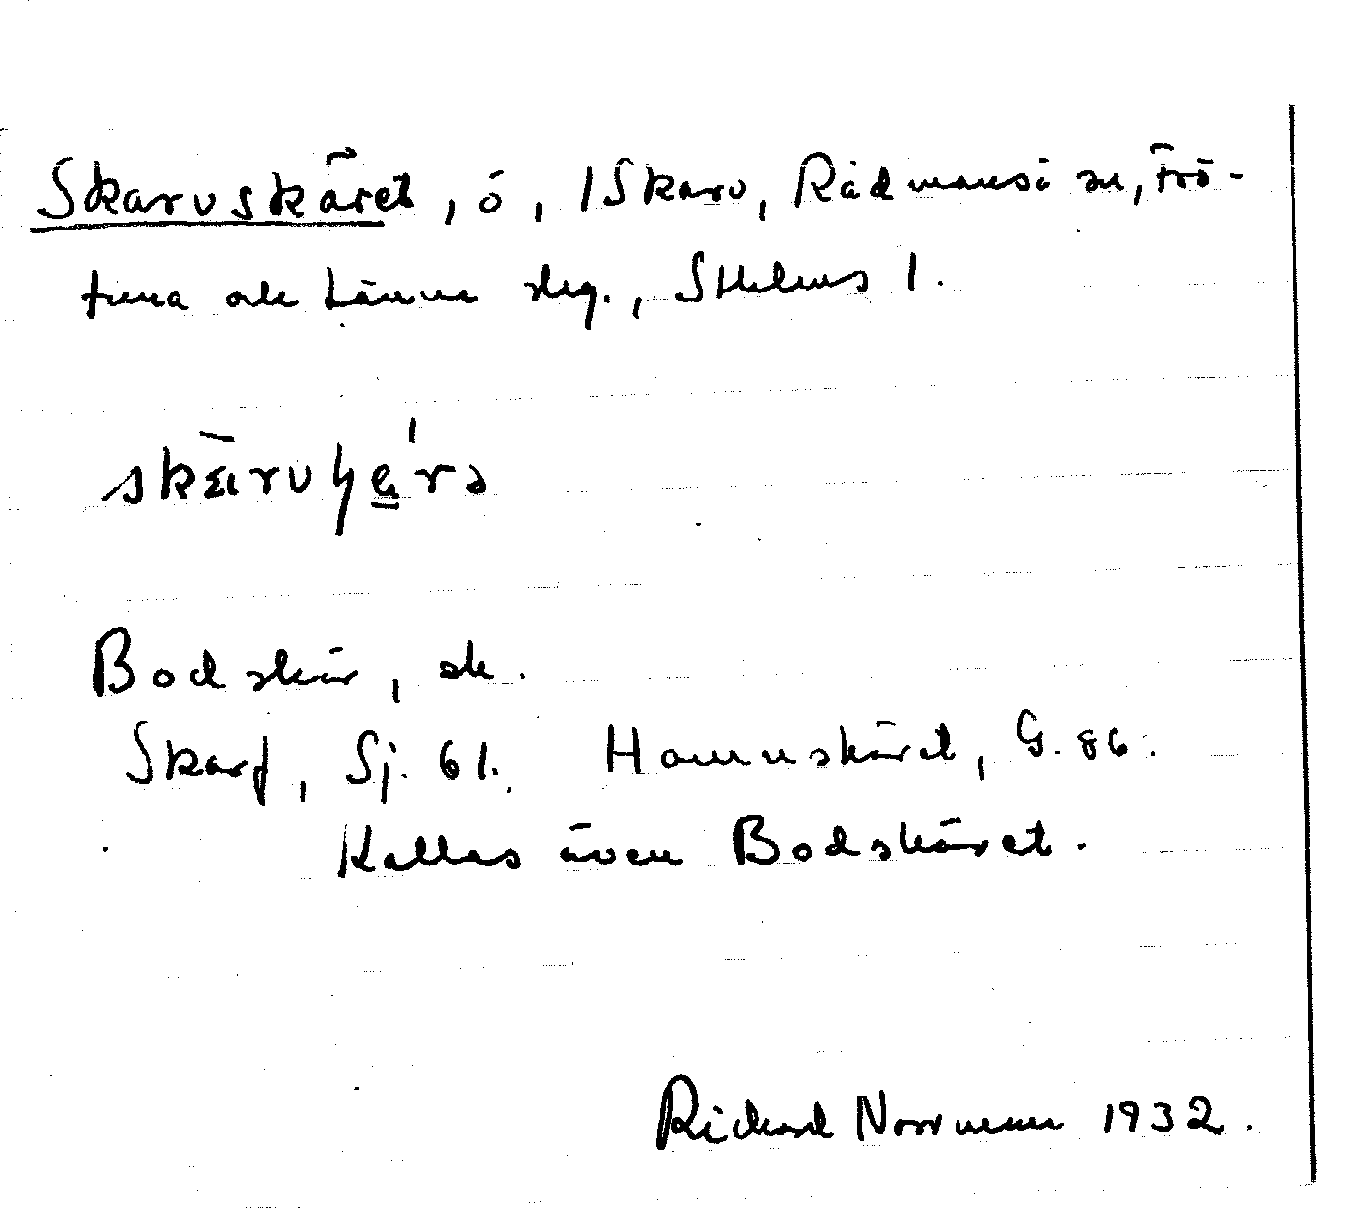 Skarvskäret, ö, 1 Skarv, Rådmansö sn, Frö-
tuna och Länna skg., Sthlms l.
Bodskär, ek.
Skarf, Sj. 61. Hamnskäret, G. 86.
Kallas även Bodskäret.
Rickard Norrman 1932.